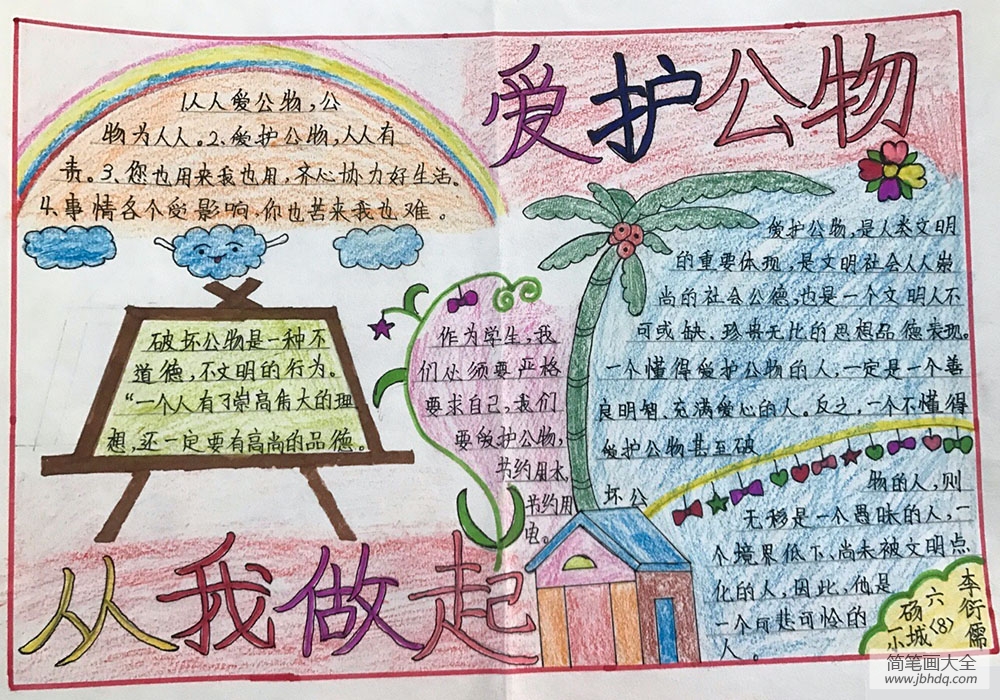 爱护公物
1人人爱公物，公
物为人人。2、爱护公物，人人有
责。3、您也用来我也用，齐心协力好生活。
4.事情各个受影响，你也苦来我也难。
破坏公物是一种不
道德，不文明的行为。
“一个人有了崇高伟大的理
想，还一定要有高尚的品德。
作为学生，我
们必须要严格
要求自己，我们
要爱护公物，
节约用水，
节约用
电。
爱护公物，是人类文明
的重要体现，是文明社会人人崇
尚的社会公德，也是一个文明人不
可或缺、珍贵无比的思想品德表现。
一个懂得爱护公物的人，一定是一个善
良明智、充满爱心的人。反之，一个不懂得
爱护公物甚至破
坏公
物的人，则
无疑是一个愚昧的人，一
个境界低下、尚未被文明点
化的人，因此，他是
一个可悲可怜的
人。
从我做起
砀城小
六〈8〉
李衍儒
简笔画大全
www.jbhdq.com